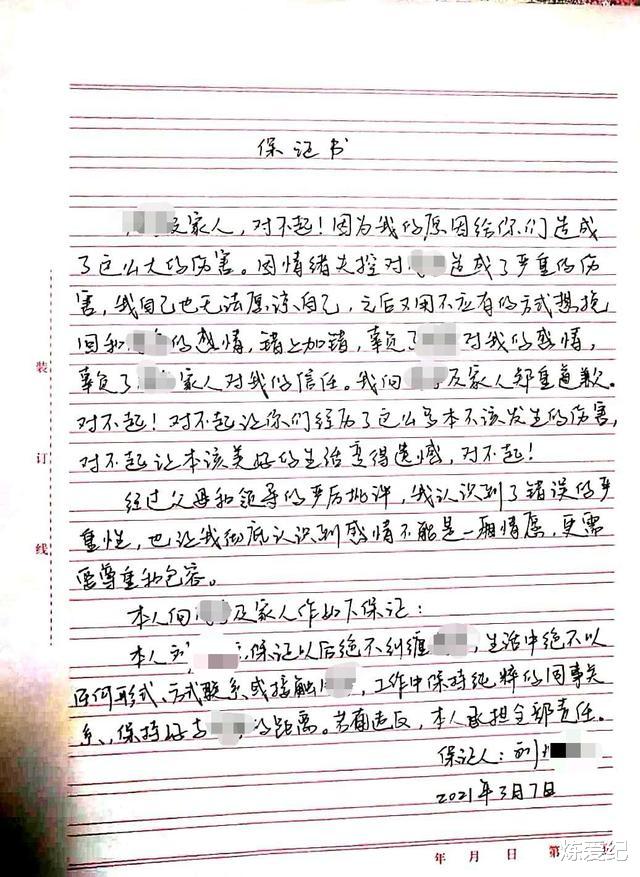 保证书
及家人，对不起！因为我的原因给你们造成
了这么大的伤害。因情绪失控对 造成了严重的伤
害，我自己也无法原谅自己，之后又用不应有的方式想挽
回和 的感情，错上加错，辜负了 对我的感情，
辜负了 家人对我的信任。我向 及家人郑重道歉。
对不起！对不起让你们经历了这么多本不该发生的伤害，
对不起让本该美好的生活变得遗憾，对不起！
经过父母和领导的严厉批评，我认识到了错误的严
重性，也让我彻底认识到感情不能是一厢情愿，更需
要尊重和包容。
本人向 及家人作如下保证：
本人刘 保证以后绝不纠缠 ，生活中绝不以
任何形式、方式联系或接触 ，工作中保持纯粹的同事关
系，保持好与 的距离。若有违反，本人承担全部责任。
保证人：刘
2021年3月7日
装
订
线
年 月 日 第
炼爱纪